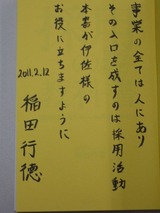 事業の全ては人にあり
その入口を成すのは採用活動
本書が伊佐様の
お役に立ちますように
2011.2.12
稲田行徳